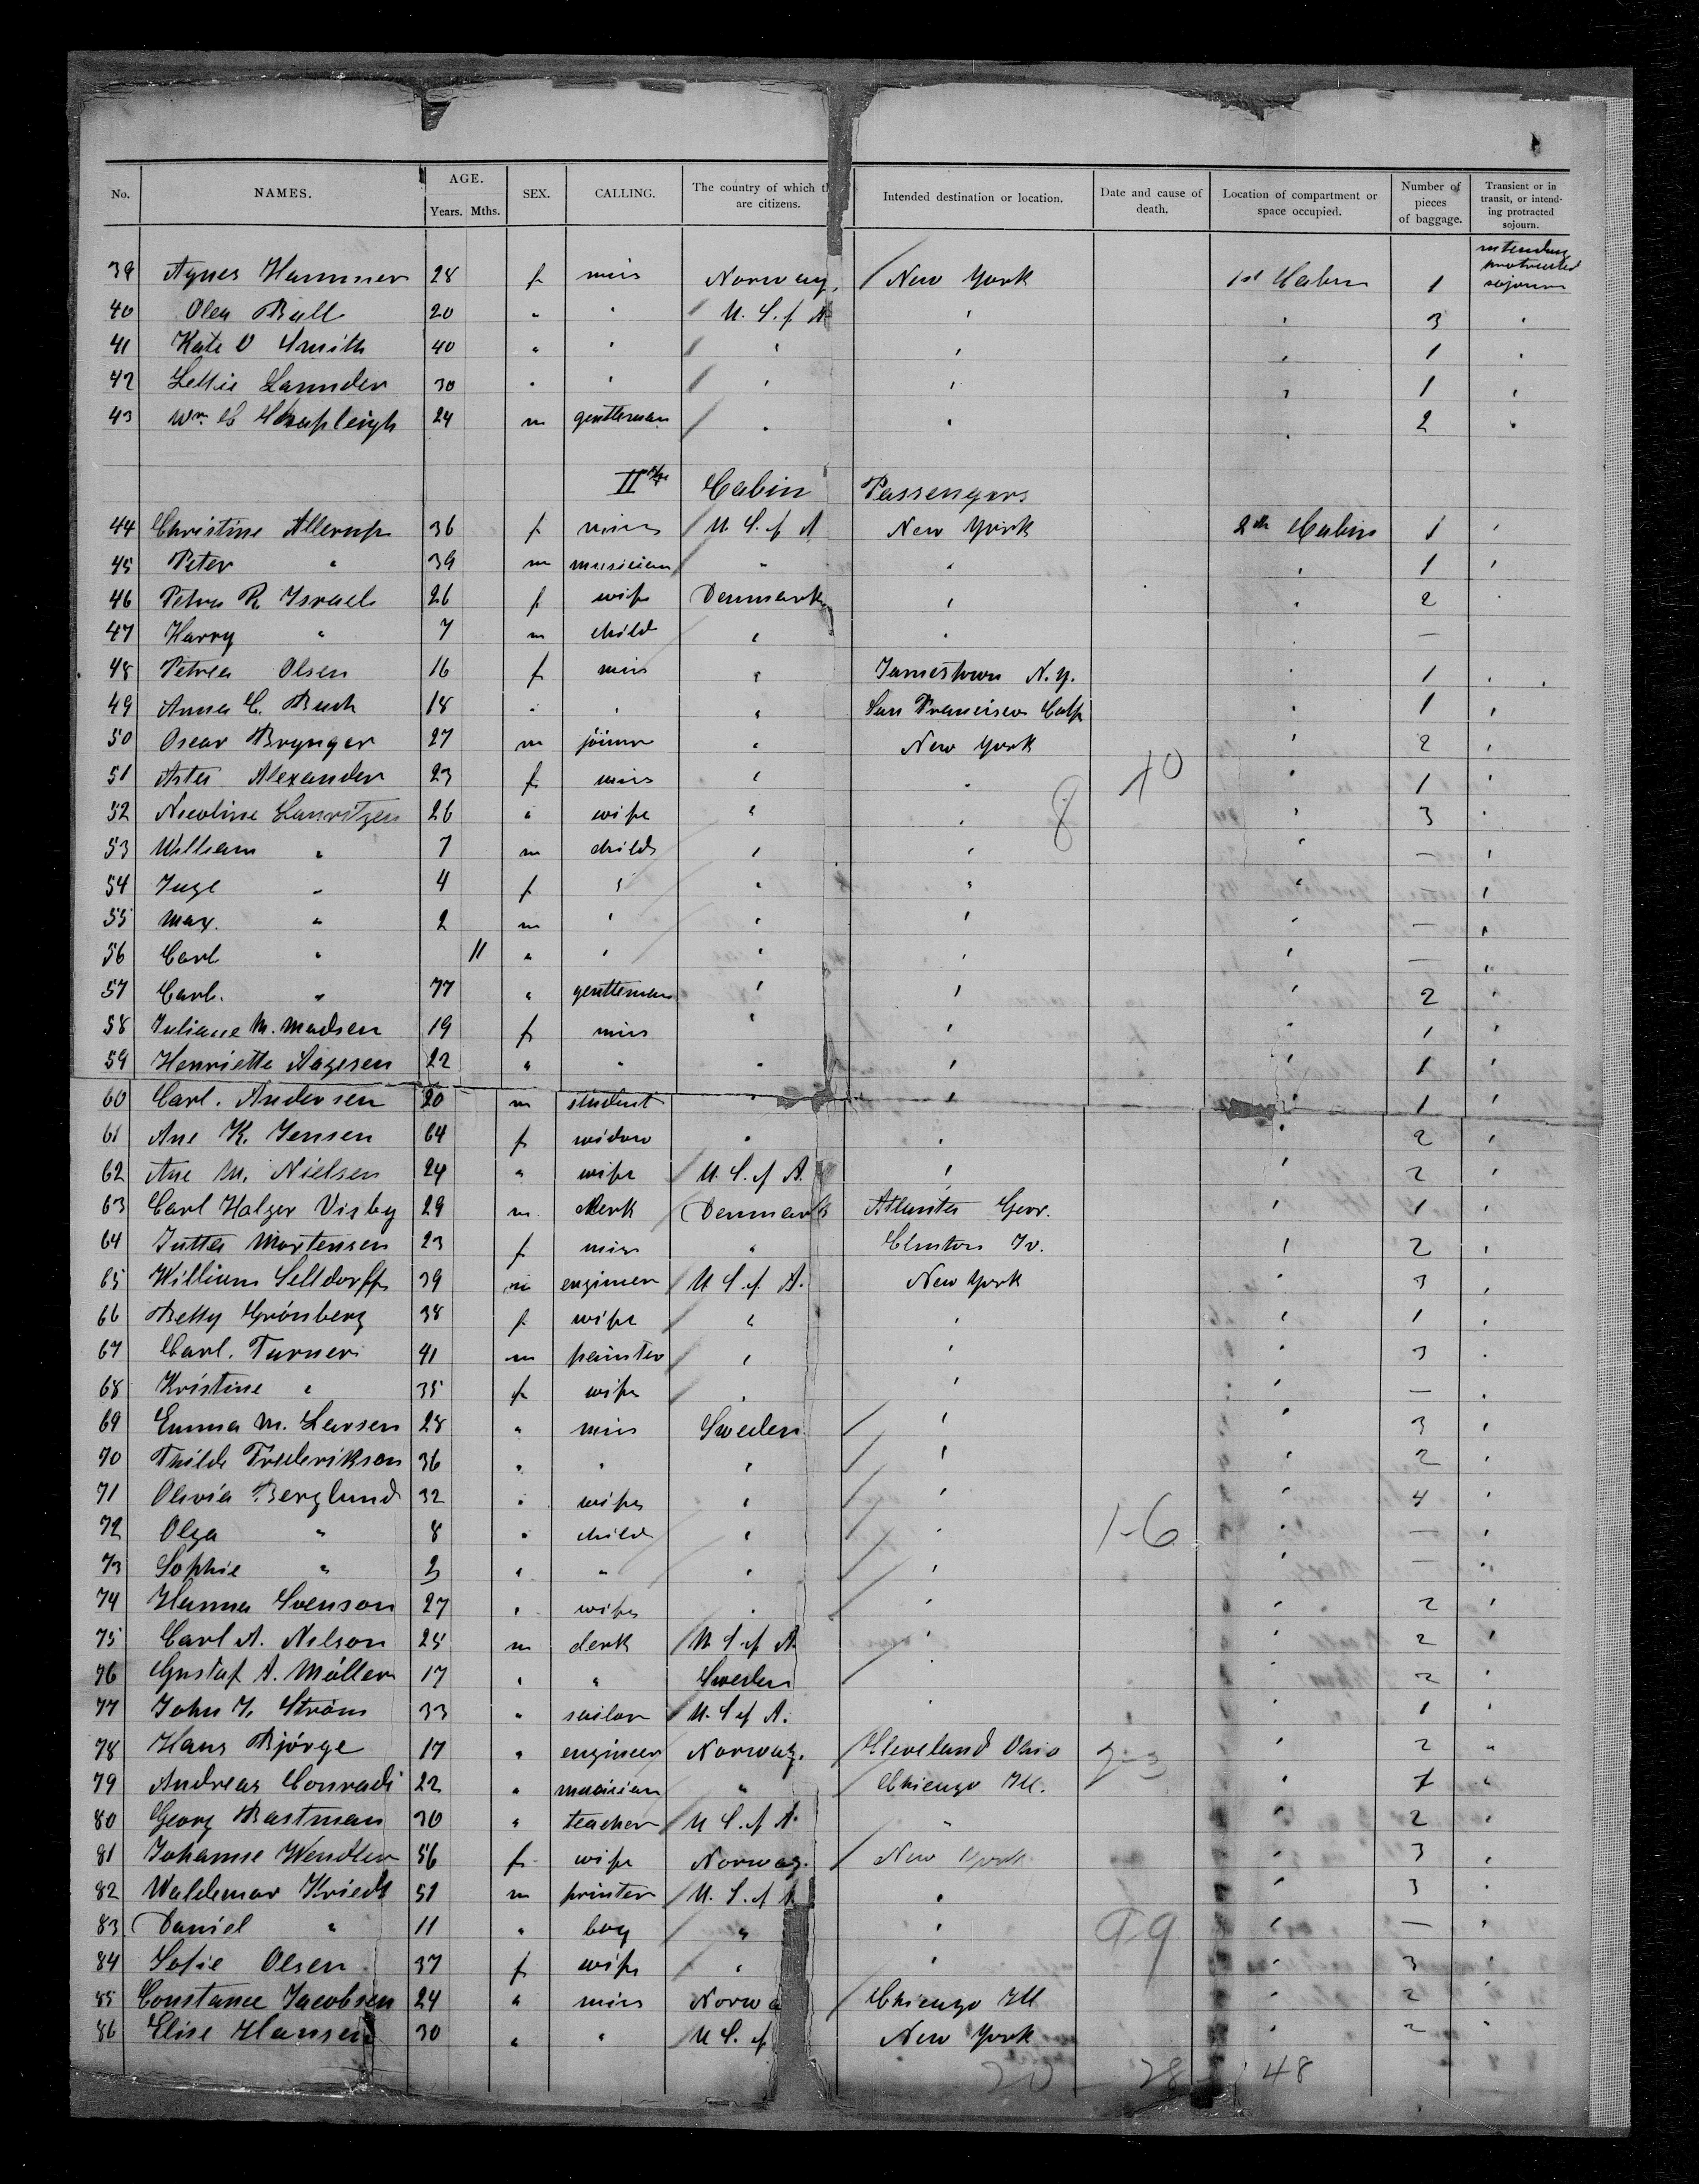 No. NAMES. AGE. Years. Mths. SEX. CALLING. The country of which th are citizens. Intended destination or location. Date and cause of death. Location of compartment or space occupied. Number of pieces of baggage. Transient or in transit, or intending protracted sojourn.
intending protracted sojourn
39 Agnes Hammer 28 f miss Norway. New York 1st Cabin 1
40 Olea Bull 20 " " U. S. of A " " 3 "
41 Kate V Smith 40 " " " " " 1 "
42 Lettie Launder 30 " " " " " 1 "
43 Wm. C Shapleigh 24 m gentleman " " " 2 "
II Cabin Passengers
44 Christine Allerup 36 f miss U. S. of A New York 2th Cabin 1 "
45 Peter " 39 m musician " " " 1 "
46 Petra R. Israel 26 f wife Denmark " " 2 "
47 Harry " 7 m child " " " —
48 Petrea Olsen 16 f miss " Jamestown N.Y. " 1 "
49 Anna C. Buch 18 " " " San Francisco Calf " 1 "
50 Oscar Brynger 27 m joiner " New York " 2 "
51 Asta Alexander 23 f miss " " 10 " 1 "
52 Nicoline Lauritzen 26 " wife " " 8 " 3 "
53 William " 7 m child " " " — "
54 Inge " 4 f " " " " — "
55 Max. " 2 m " " " " — "
56 Carl " 11 " " " " " — "
57 Carl. " 77 " gentleman " " " 2 "
58 Juliane M. Madsen 19 f miss " " " 1 "
59 Henriette Aagesen 22 " " " " " 1 "
60 Carl. Andersen 20 m student " " " 1 "
61 Ane K. Jensen 64 f widow " " " 2 "
62 Ane M. Nielsen 24 " wife U. S. of A. " " 2 "
63 Carl Holger Visby 29 m clerk Denmark Atlanta Geor. " 1 "
64 Jutta Mortensen 23 f miss " Clinton Io. " 2 "
65 William Selldorff 39 m engineer U S. of A. New York " 3 "
66 Betty Grönberg 38 f wife " " " 1 "
67 Carl. Turner 41 m painter " " " 3 "
68 Kristine " 35 f wife " " " — "
69 Emma M. Larsen 28 " miss Sweden " " 3 "
70 Thilda Frederikson 36 " " " " " 2 "
71 Olivia Berglund 32 " wife " " " 4 "
72 Olga " 8 " child " " 1-6 " — "
73 Sophie " 3 " " " " " — "
74 Hanna Svenson 27 " wife " " " 2 "
75 Carl A. Nelson 25 m clerk U S. of A " " 2 "
76 Gustaf A. Möller 17 " " Sweden " " 2 "
77 John J. Ström 33 " sailor U. S. of A. " " 1 "
78 Hans Bjørge 17 " engineer Norway. Cleveland Ohio " 2 "
79 Andreas Conradi 22 " musician " Chicago Ill. " 1 "
80 Georg Bastman 30 " teacher U S. of A. " " 2 "
81 Johanne Wendler 56 f wife Norway. New York " 3 "
82 Waldemar Kriedt 51 m printer U. S. of A " " 3 "
83 Daniel " 11 " boy " " 99 " — "
84 Sofie Olsen 37 f wife " " " 3 "
85 Constance Jacobsen 24 " miss Norwa Chicago Ill " 2 "
86 Elise Hansen 30 " " U S. of New York " 2 "
20 28 48